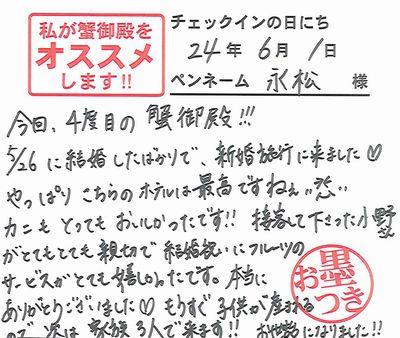 私が蟹御殿を
オススメ
します!!
チェックインの日にち
24年 6月 1日
ペンネーム 永松 様
今回、4度目の 蟹御殿!!!
5/26 に結婚したばかりで、新婚旅行に来ました♡
やっぱり こちらの ホテルは 最高ですねぇ
カニも とっても おいしかったです!! 接客して下さった小野さん
がとてもとても 親切で 結婚祝いに フルーツの
サービスがとても嬉しかったです。本当に
ありがとうございました♡ もうすぐ 子供が 産まれる
ので、次は 家族 3人で来ます!! お世話になりました!!
お墨つき